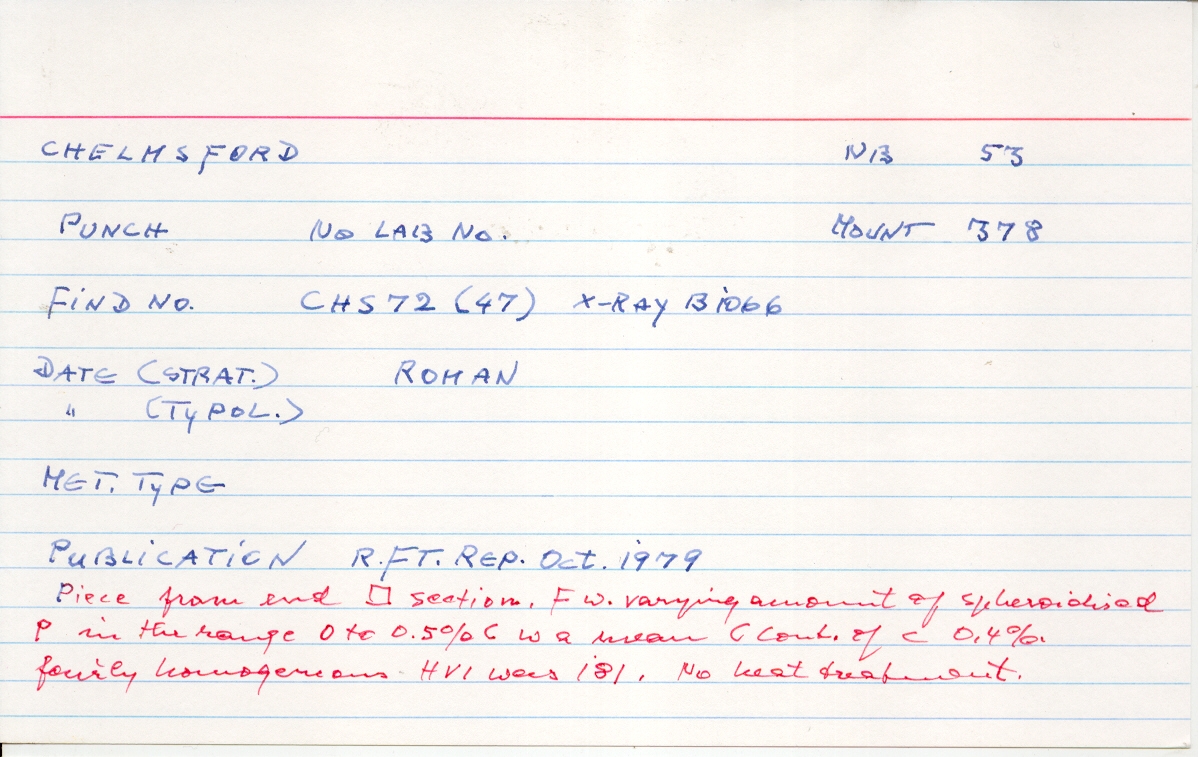 CHELMSFORD NB 53
PUNCH NO LAB NO. MOUNT 378
FIND NO. CHS 72 (47) X-RAY B1066
DATE (STRAT.) ROMAN
" (TYPOL.)
MET. TYPE
PUBLICATION R.F.T. REP. Oct. 1979
Piece from end □ section. F w. varying amount of spheroidised
P in the range 0 to 0.5% C w a mean C Cont. of c 0.4%.
fairly homogeneous. HV1 was 181. No heat treatment.